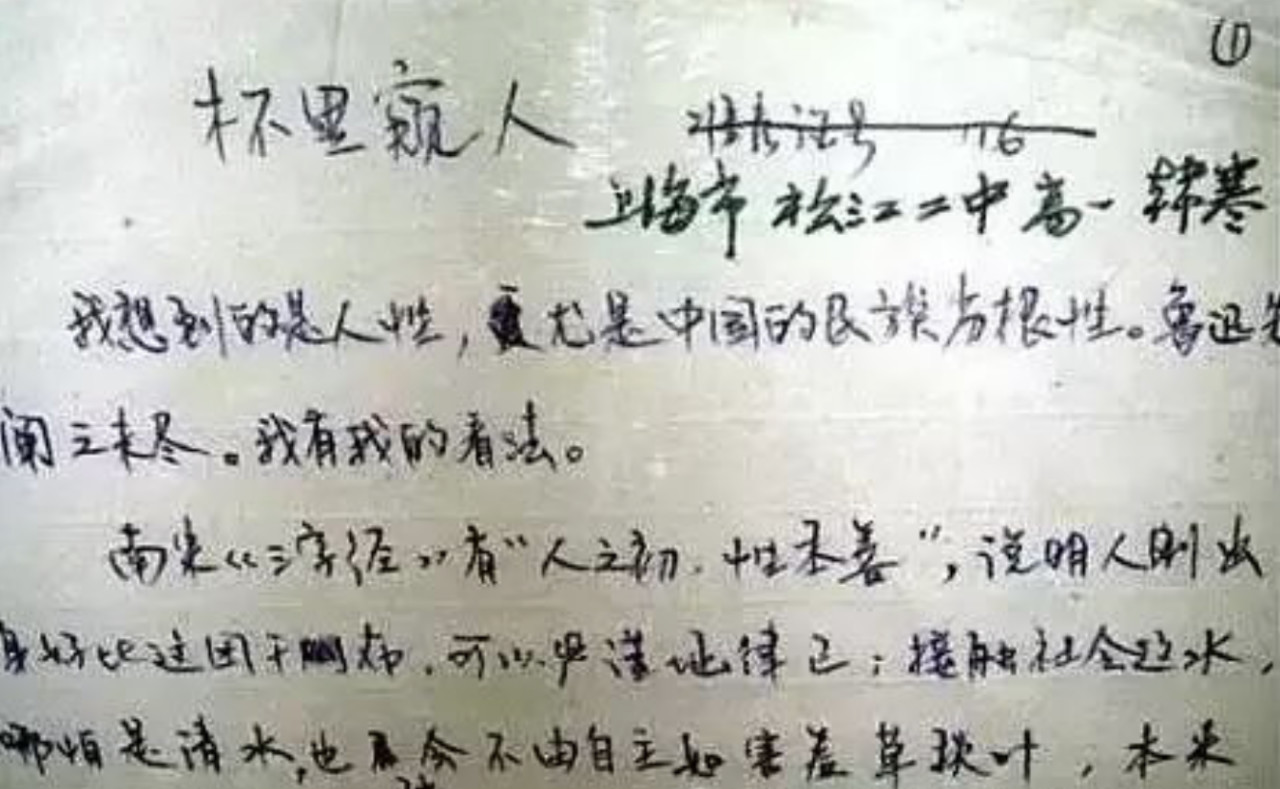 ①
杯里窥人
准考证号 116
上海市 松江二中 高一 韩寒
我想到的是人性，尤是中国的民族劣根性。鲁迅先
阐之未尽。我有我的看法。
南宋《三字经》有“人之初，性本善”，说明人刚出
身好比这团干布，可以严谨地律己；接触社会这水，
哪怕是清水，也会不由自主如害羞草叶，本来